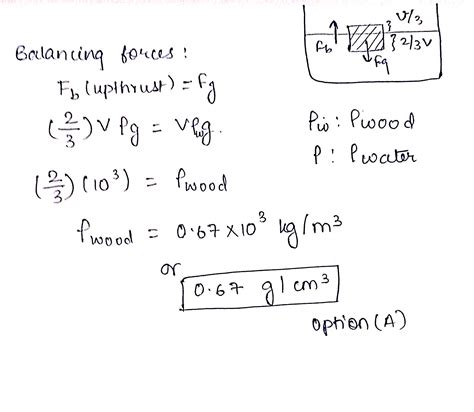 Balancing forces :
V/3
2/3 V
F_b
F_g
F_b (upthrust) = F_g
(2/3) V ρg = V ρ_w g.
ρ_w : ρ_wood
ρ : ρ_water
(2/3) (10³) = ρ_wood
ρ_wood = 0.67 × 10³ kg/m³
or
0.67 g/cm³
option (A)